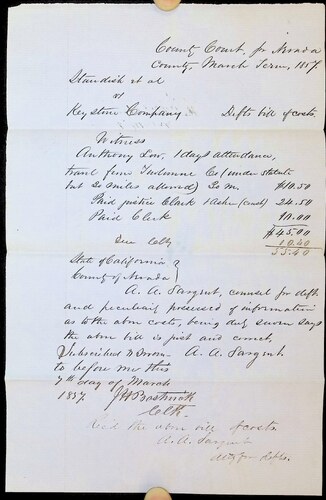 County Court, for Nevada
County, March Term, 1857.
Standish et al
vs
Keystone Company. Defts bill of costs.
Witness
Anthony Low, 1 days attendance,
travel from Tuolumne Co (under statute
but 30 miles allowed) 30 m. $10.50
Paid justice Clark (cash) 24.50
Paid Clerk 10.00
$45.00
Due Clk 10.40
55.40
State of California }
County of Nevada }
A. A. Sargent, counsel for deft
and peculiarly possessed of information
as to the above costs, being duly sworn says
the above bill is just and correct.
Subscribed & Sworn A. A. Sargent
to before me this
7th day of March
1857.
Clk.
Recd the above bill of costs
A. A. Sargent
atty for defts.